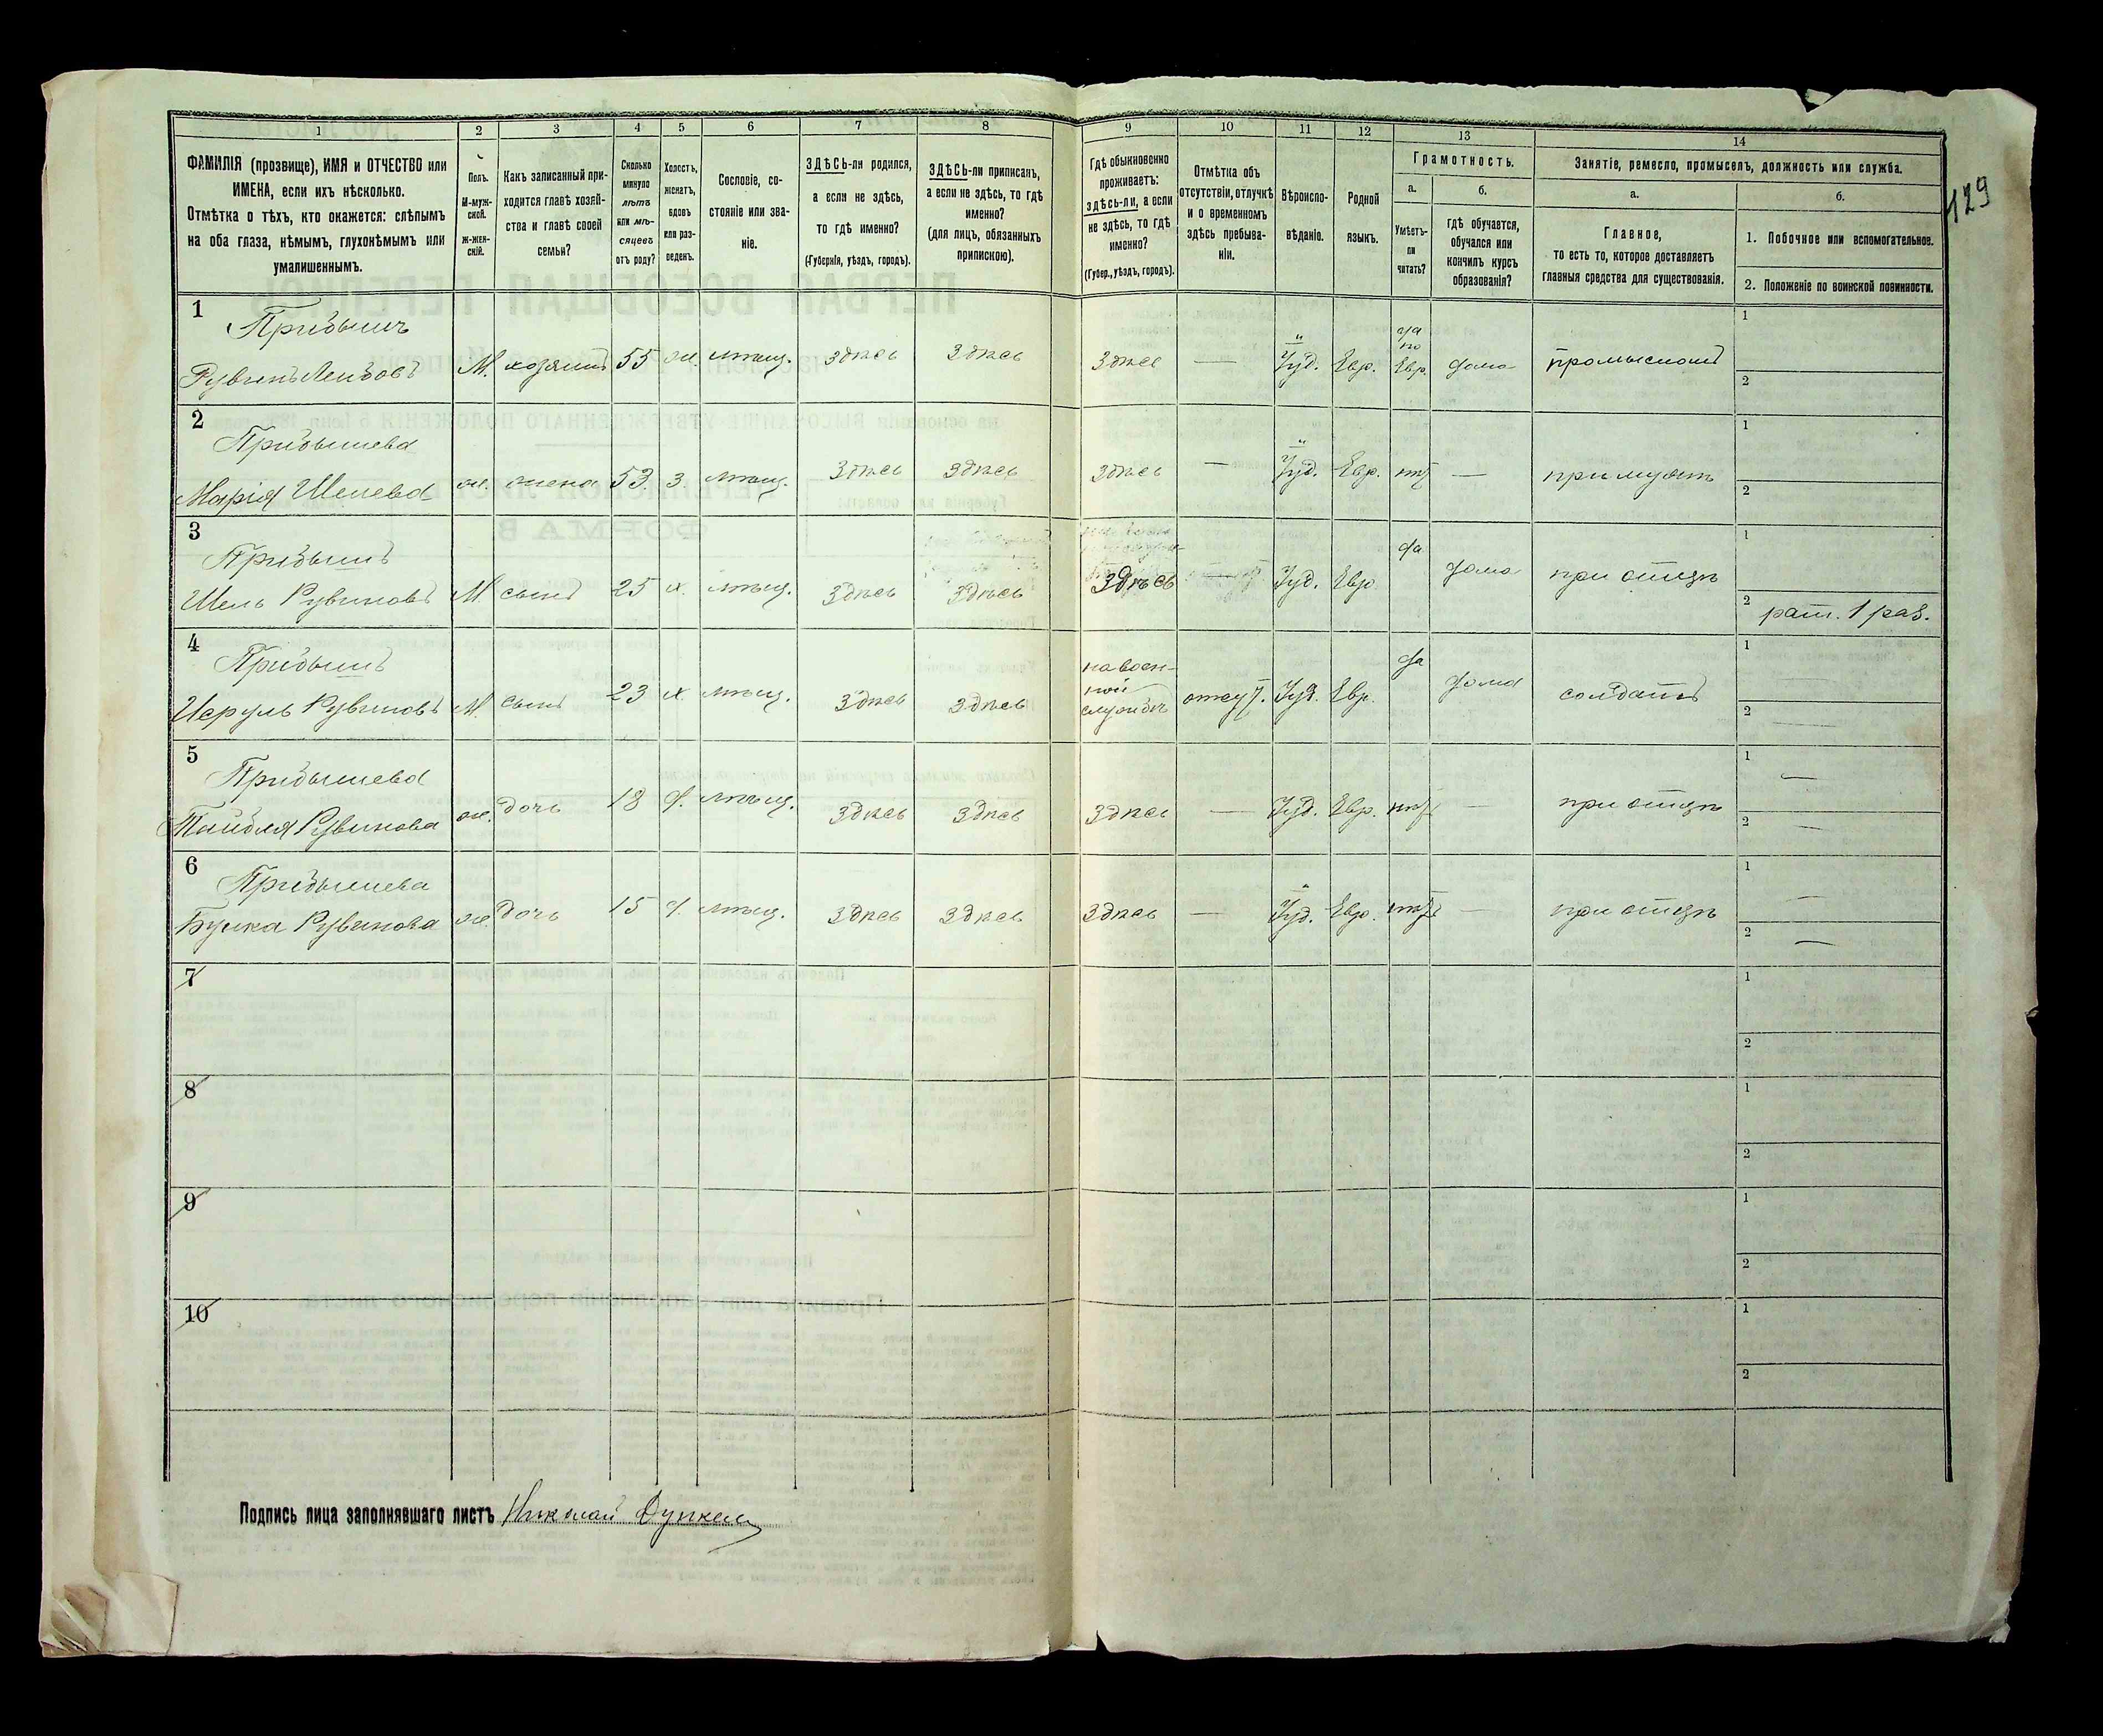 129
1 2 3 4 5 6 7 8 9 10 11 12 13 14
ФАМИЛІЯ (прозвище), ИМЯ и ОТЧЕСТВО или ИМЕНА, если ихъ нѣсколько.
Отмѣтка о тѣхъ, кто окажется: слѣпымъ на оба глаза, нѣмымъ, глухонѣмымъ или умалишеннымъ.
Полъ. М-мужской. Ж-женскій.
Какъ записанный приходится главѣ хозяйства и главѣ своей семьи?
Сколько минуло лѣтъ или мѣсяцевъ отъ роду?
Холостъ, женатъ, вдовъ или разведенъ.
Сословіе, состояніе или званіе.
ЗДѢСЬ-ли родился, а если не здѣсь, то гдѣ именно? (Губернія, уѣздъ, городъ).
ЗДѢСЬ-ли приписанъ, а если не здѣсь, то гдѣ именно? (для лицъ, обязанныхъ припискою).
Гдѣ обыкновенно проживаетъ: здѣсь-ли, а если не здѣсь, то гдѣ именно? (Губер., уѣздъ, городъ).
Отмѣтка объ отсутствіи, отлучкѣ и о временномъ здѣсь пребываніи.
Вѣроисповѣданіе.
Родной языкъ.
Грамотность.
а. Умѣетъ-ли читать?
б. Гдѣ обучается, обучался или кончилъ курсъ образованія?
Занятіе, ремесло, промыселъ, должность или служба.
а. Главное, то есть то, которое доставляетъ главныя средства для существованія.
б. 1. Побочное или вспомогательное.
2. Положеніе по воинской повинности.
1 Рувинъ Лейбовъ М. хозяинъ 55 ж. мѣщ. здѣсь здѣсь здѣсь — Іуд. Евр. да по Евр. дома 1 2
2 Марія Шелева ж. жена 53 з. мѣщ. здѣсь здѣсь здѣсь — Іуд. Евр. нѣтъ — при мужѣ 1 2
3 Шель Рувиновъ М. сынъ 25 х. мѣщ. здѣсь здѣсь здѣсь Іуд. Евр. да дома при отцѣ 1 2 рат. 1 раз.
4 Исруль Рувиновъ М. сынъ 23 х. мѣщ. здѣсь здѣсь на военной службѣ отсут. Іуд. Евр. да дома солдатъ 1 2
5 Рувинова ж. дочь 18 д. мѣщ. здѣсь здѣсь здѣсь — Іуд. Евр. нѣтъ — при отцѣ 1 — 2 —
6 Рувинова ж. дочь 15 д. мѣщ. здѣсь здѣсь здѣсь — Іуд. Евр. нѣтъ — при отцѣ 1 — 2 —
7 1 2
8 1 2
9 1 2
10 1 2
Подпись лица заполнявшаго листъ Николай